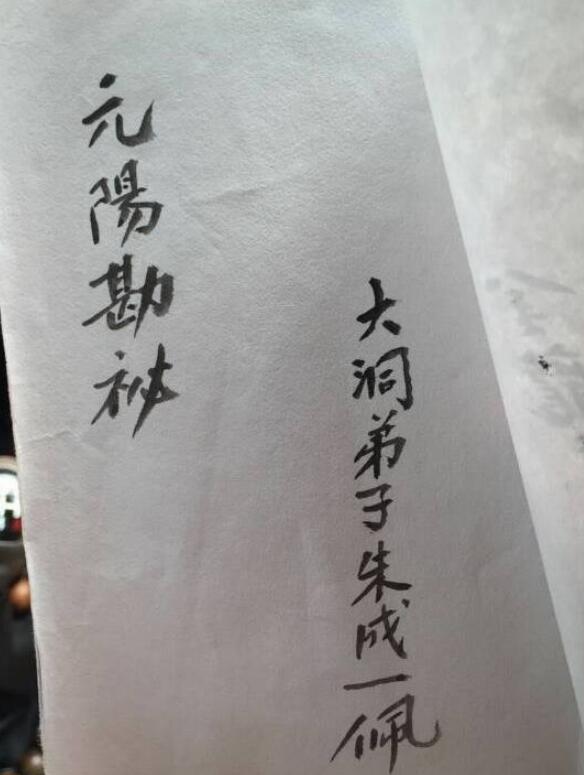 元陽勘祕
大洞弟子朱成一佩